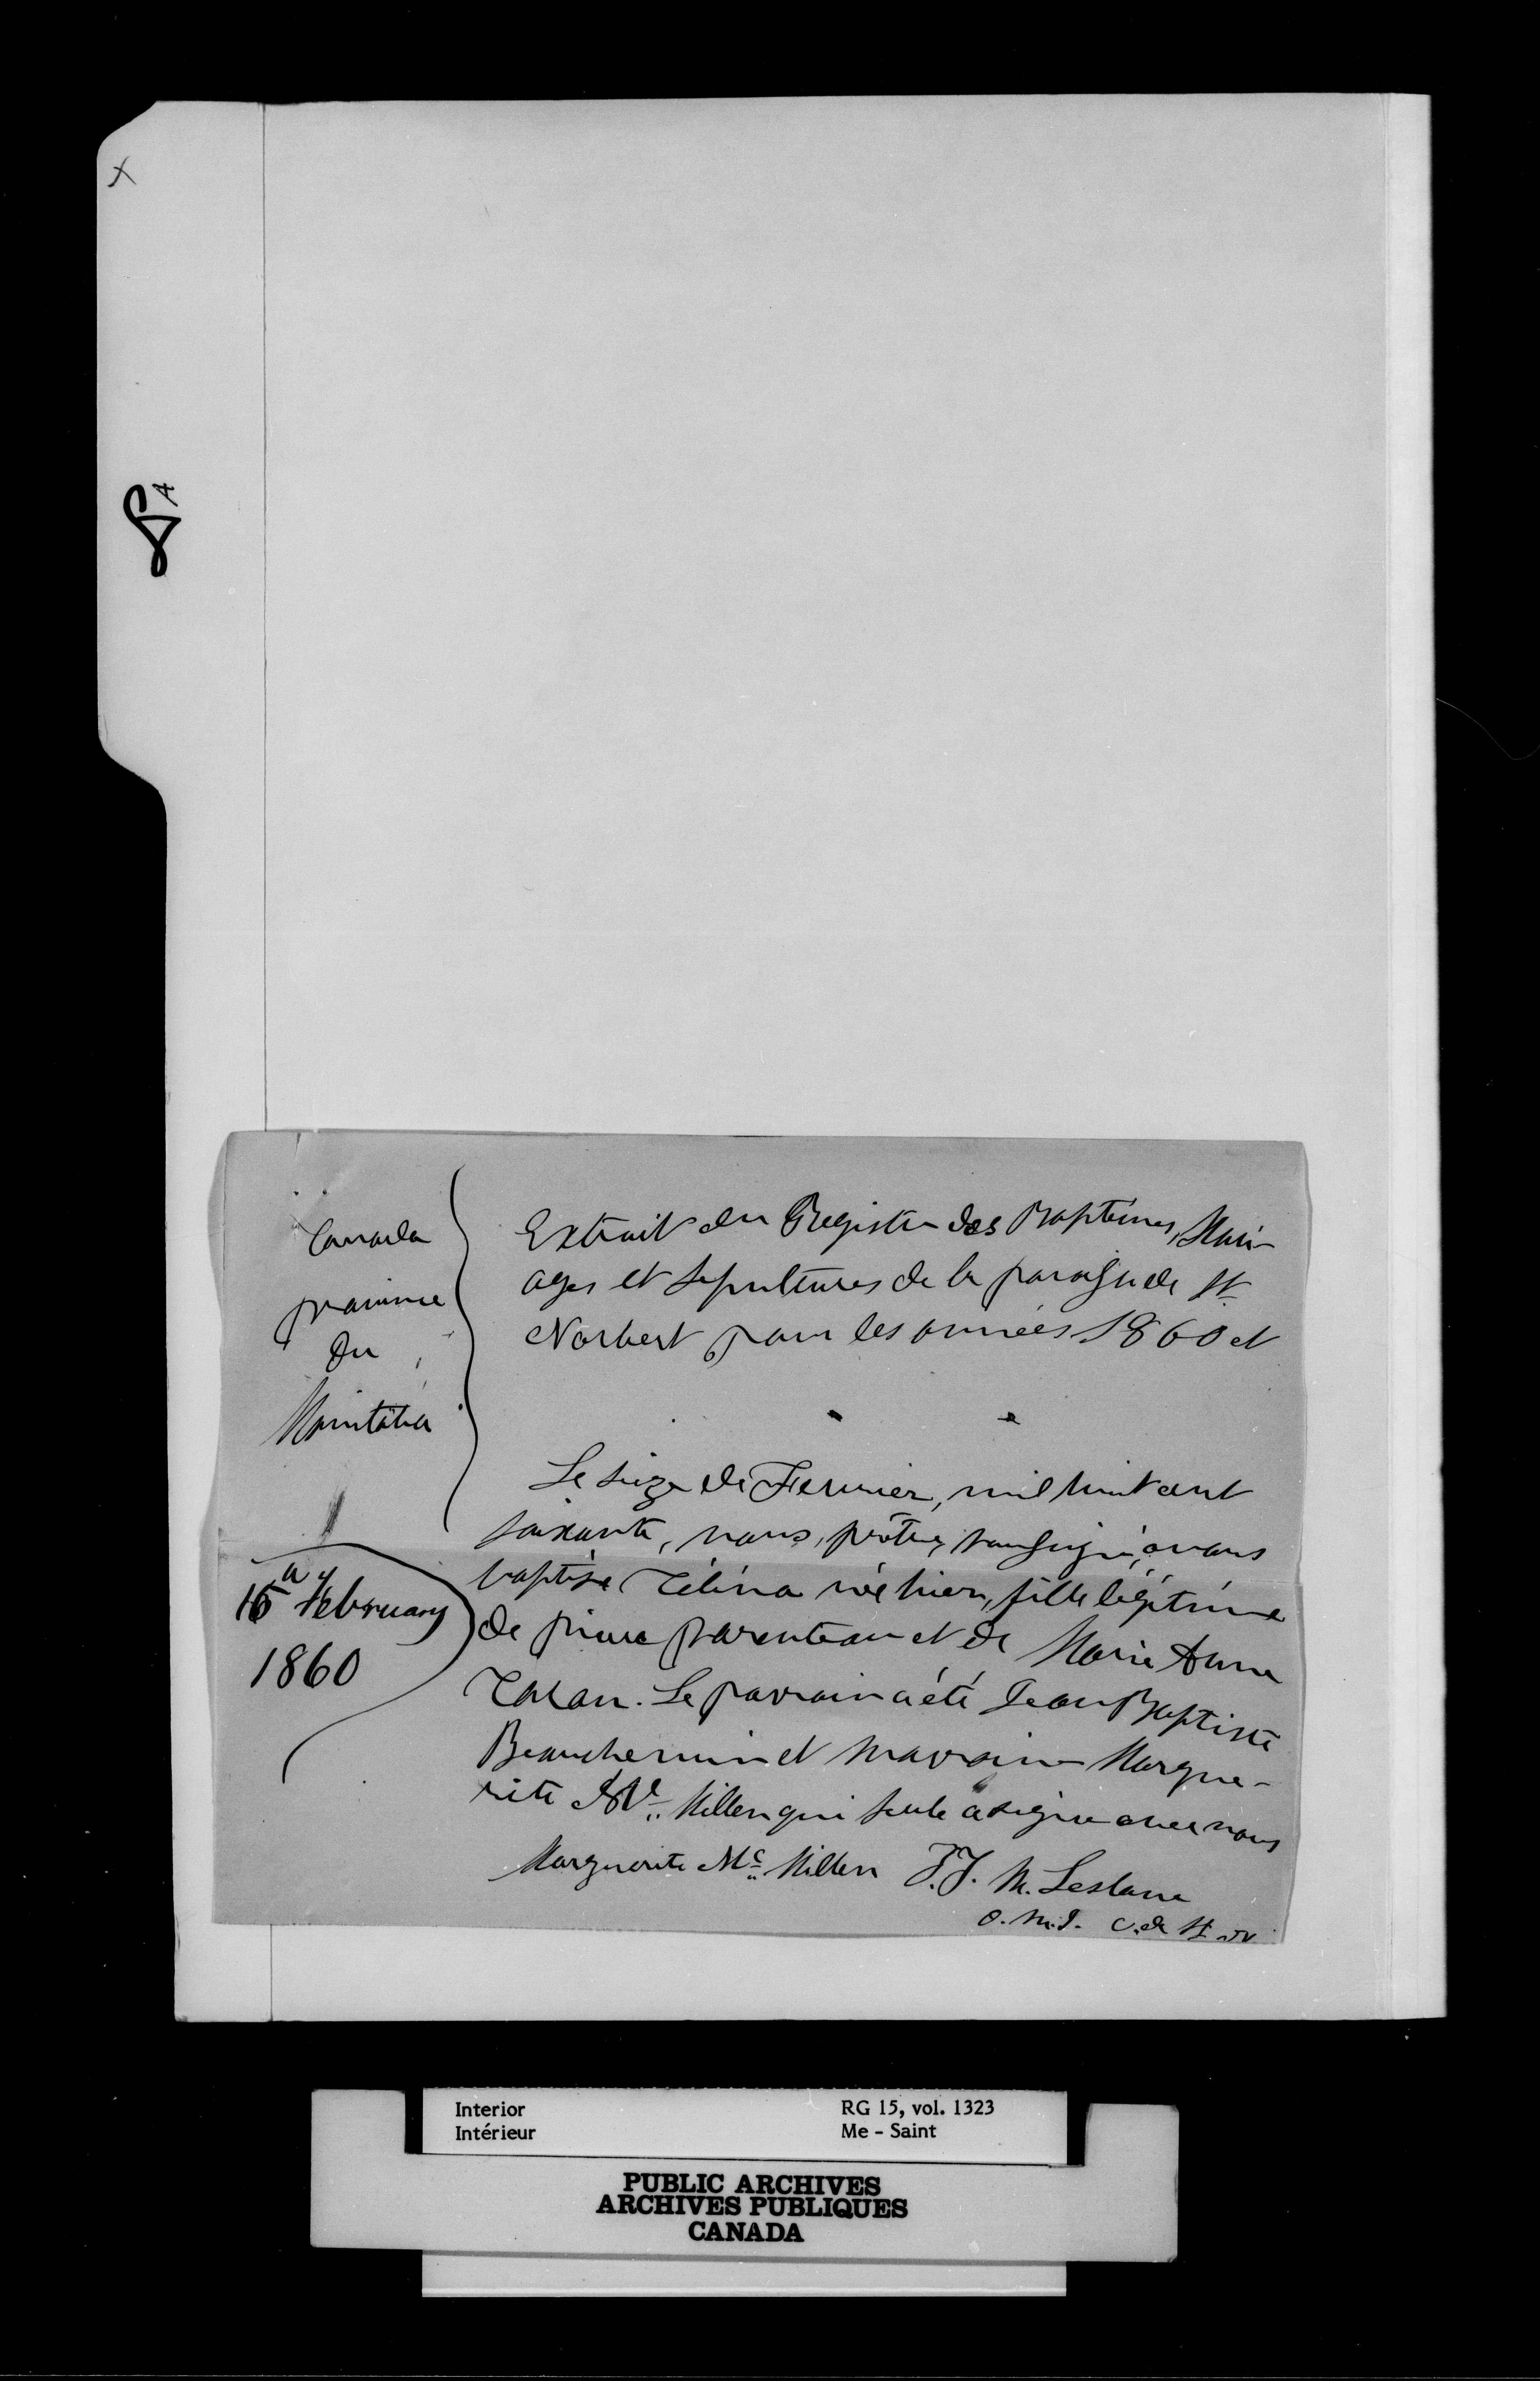 Canada
province
du
Manitoba
Extrait du Registre des Baptêmes, Mari-
ages et Sepultures de la paroisse de St
Norbert pour les années 1860 et
Le seize de Fevrier, mil huit cent
soixante, nous, prêtre, soussigné, avons
baptisé Zélina née hier, fille légitime
de pierre parenteau et de Marie Anne
Caron. Le parrain a été Jean Baptiste
Beauchemin et marraine Margue-
rite Mc Millen qui seule a signé avec nous
Marguerite Mc Millen J.J. M. Lestanc
O.M.I. C. de St N
15 February
1860
Interior
Intérieur
RG 15, vol. 1323
Me - Saint
PUBLIC ARCHIVES
ARCHIVES PUBLIQUES
CANADA